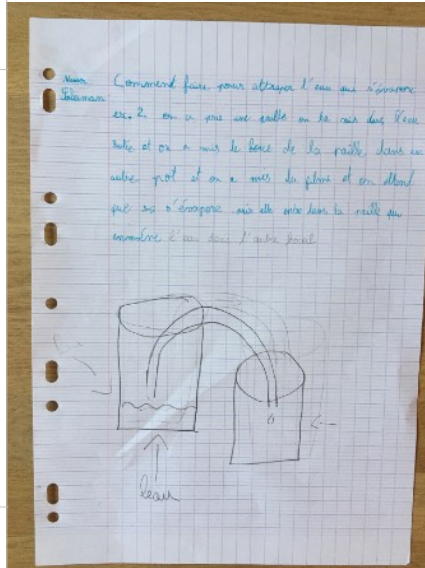 Commend faire pour attraper l'eau qui s'évapore
on a pris une paille on la mis dans l'eau
et on a mis le bout de la paille dans un
autre pot et on a mis du et on attend
que sa s'évapore mis elle entre dans la paille qui
emmène l'eau dans l'autre bocal
leau